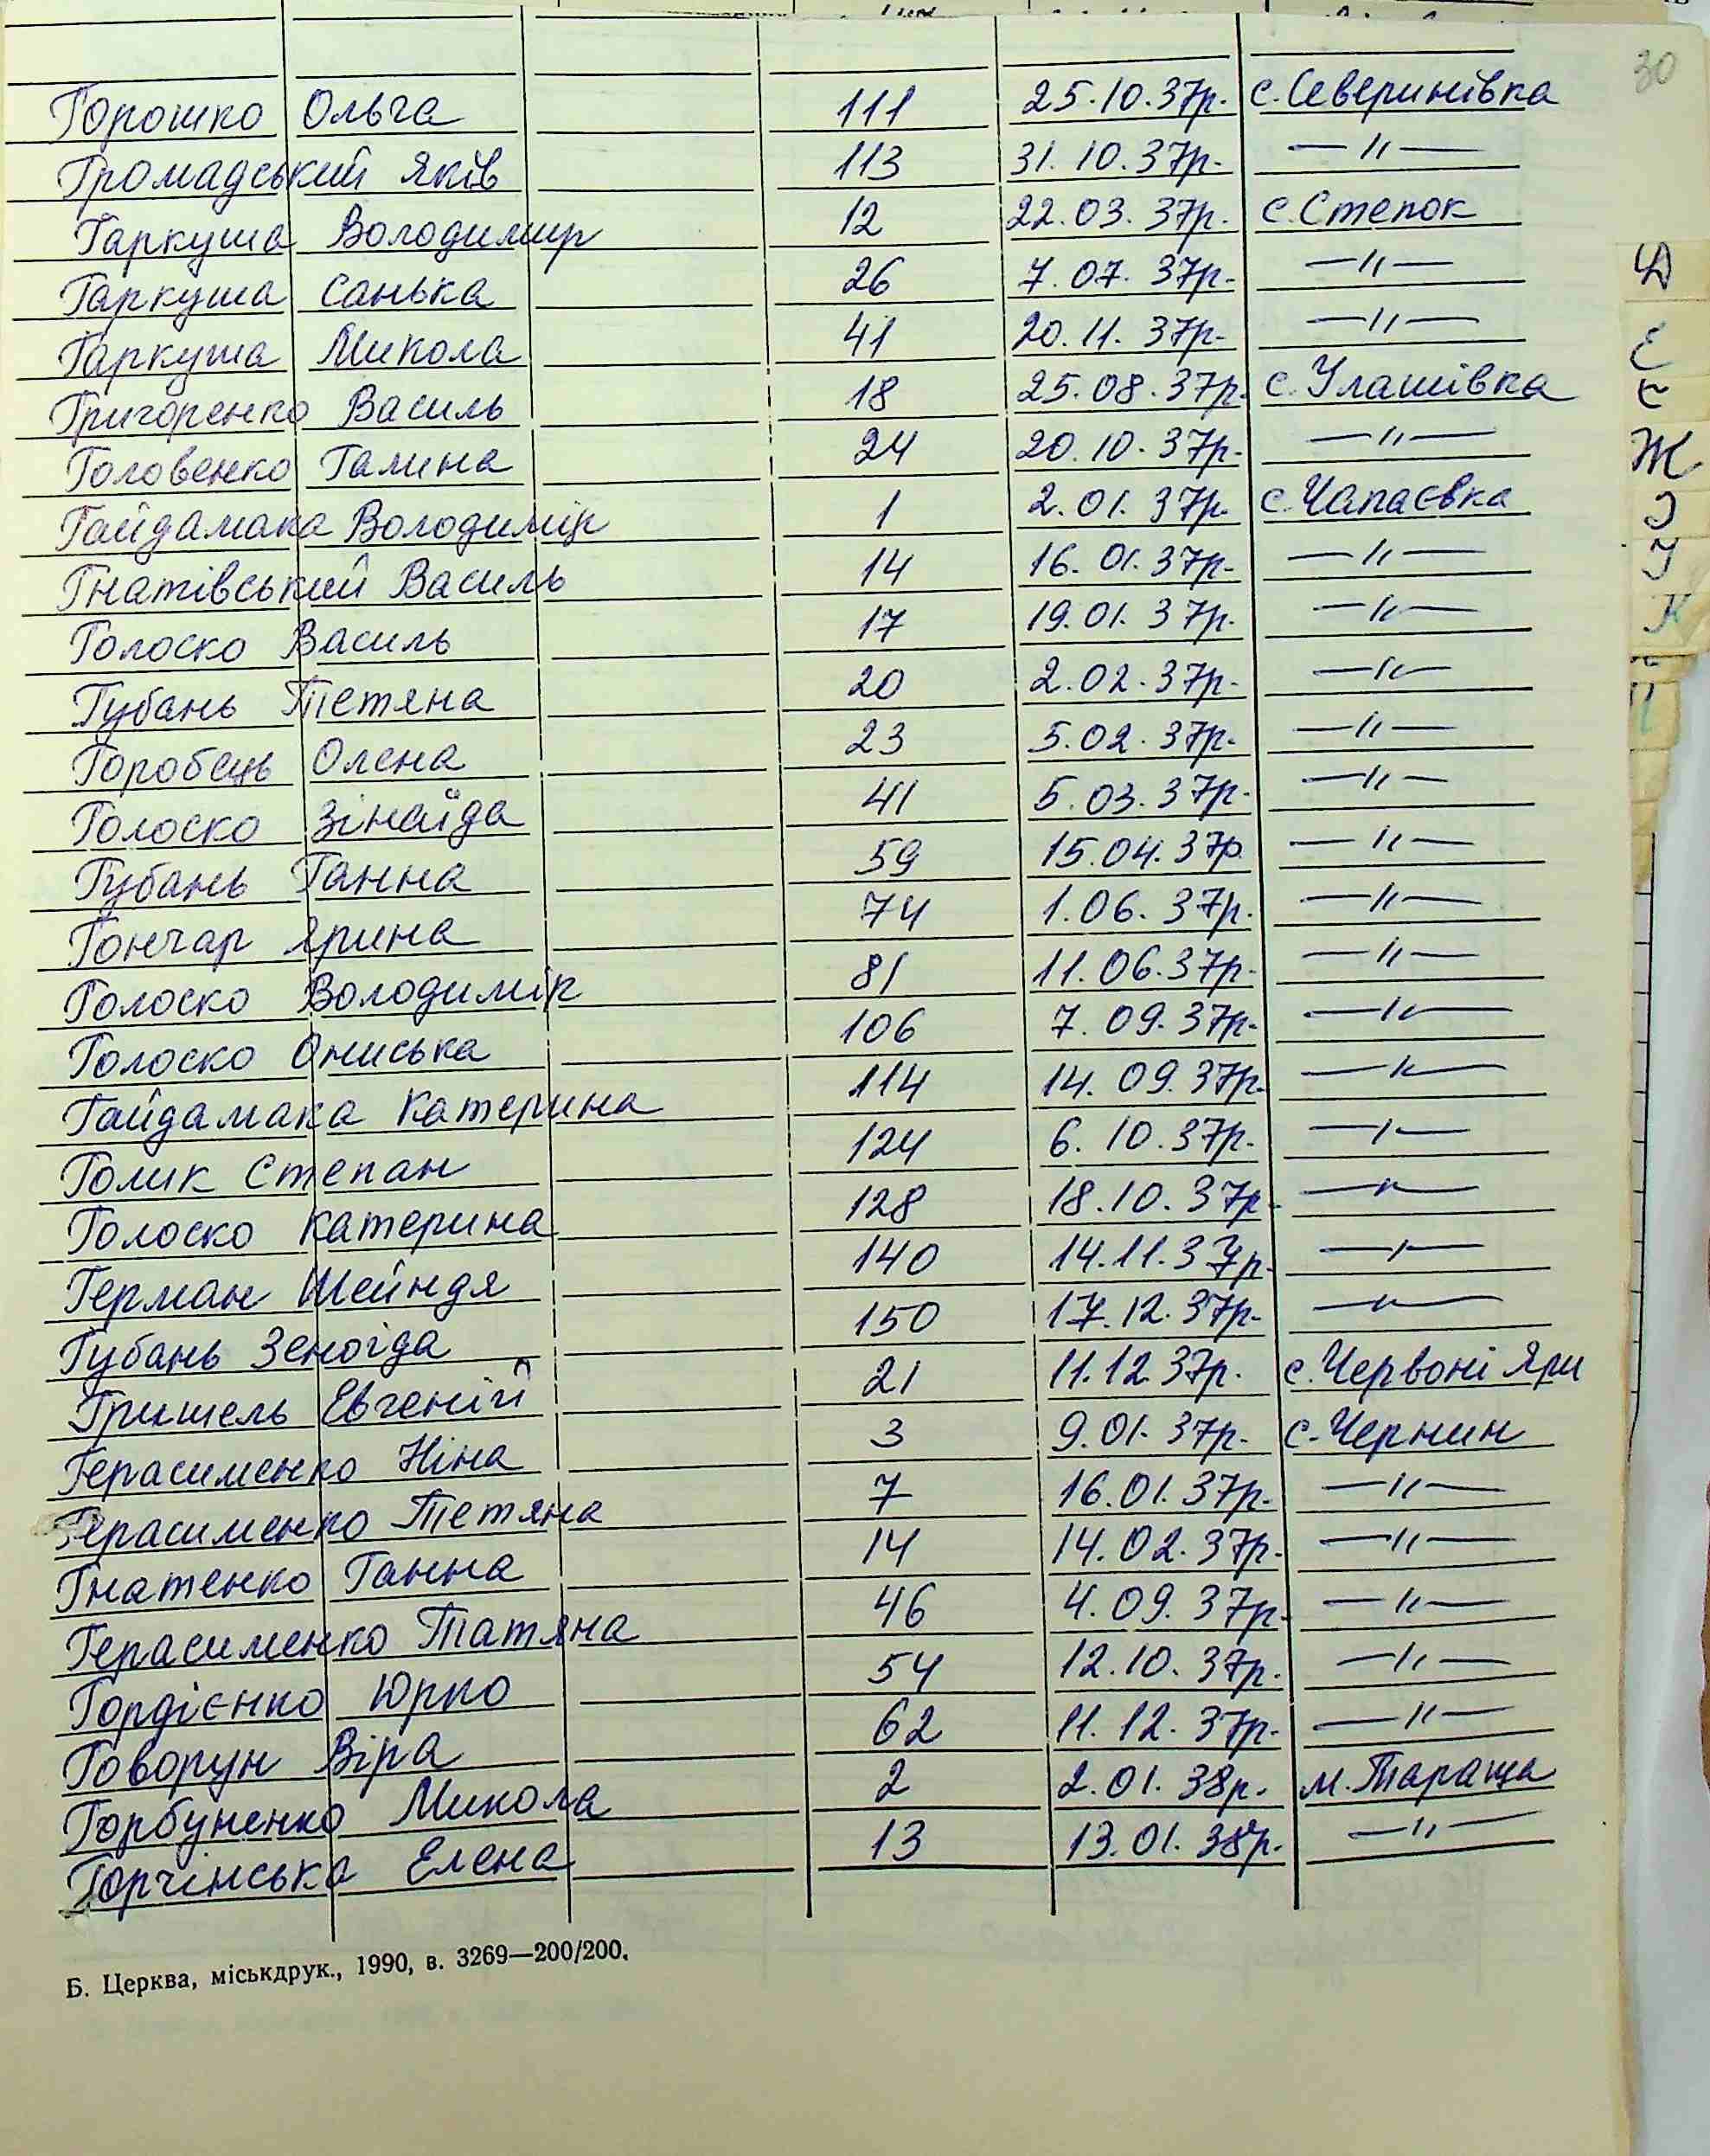 30
Горошко Ольга 111 25.10.37р. с. Северинівка
Громадський Яків 113 31.10.37р. —"—
Гаркуша Володимир 12 22.03.37р. с. Степок
Гаркуша Санька 26 7.07.37р. —"—
Гаркуша Микола 41 20.11.37р. —"—
Григоренко Василь 18 25.08.37р. с. Улашівка
Головенко Галина 24 20.10.37р. —"—
Гайдамака Володимір 1 2.01.37р. с. Чапаєвка
Гнатівський Василь 14 16.01.37р. —"—
Голоско Василь 17 19.01.37р. —"—
Губань Тетяна 20 2.02.37р. —"—
Горобець Олена 23 5.02.37р. —"—
Голоско Зінаїда 41 5.03.37р. —"—
Губань Ганна 59 15.04.37р —"—
Гончар Ярина 74 1.06.37р. —"—
Голоско Володимір 81 11.06.37р. —"—
Голоско Ониська 106 7.09.37р. —"—
Гайдамака Катерина 114 14.09.37р. —"—
Голик Степан 124 6.10.37р. —"—
Голоско Катерина 128 18.10.37р. —"—
Герман Шейндя 140 14.11.37р. —"—
Губань Зеноїда 150 17.12.37р. —"—
Гришель Евгеній 21 11.12.37р. с. Червоні Яри
Герасименко Ніна 3 9.01.37р. с. Чернин
Герасименко Тетяна 7 16.01.37р. —"—
Гнатенко Ганна 14 14.02.37р. —"—
Герасименко Татяна 46 4.09.37р. —"—
Гордієнко Юрко 54 12.10.37р. —"—
Говорун Віра 62 11.12.37р. —"—
Горбуненко Микола 2 2.01.38р. м. Тараща
Горчінська Елена 13 13.01.38р. —"—
Б. Церква, міськдрук., 1990, в. 3269—200/200.
Д
Е
Є
Ж
З
У
К